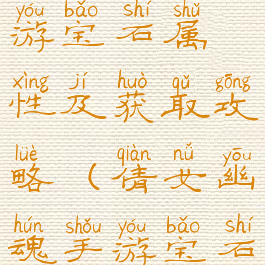 yóu bǎo shí shǔ
游宝石属
xìng jí huò qǔ gōng
性及获取攻
lüè qiàn nǚ yōu
略（倩女幽
hún shǒu yóu bǎo shí
魂手游宝石